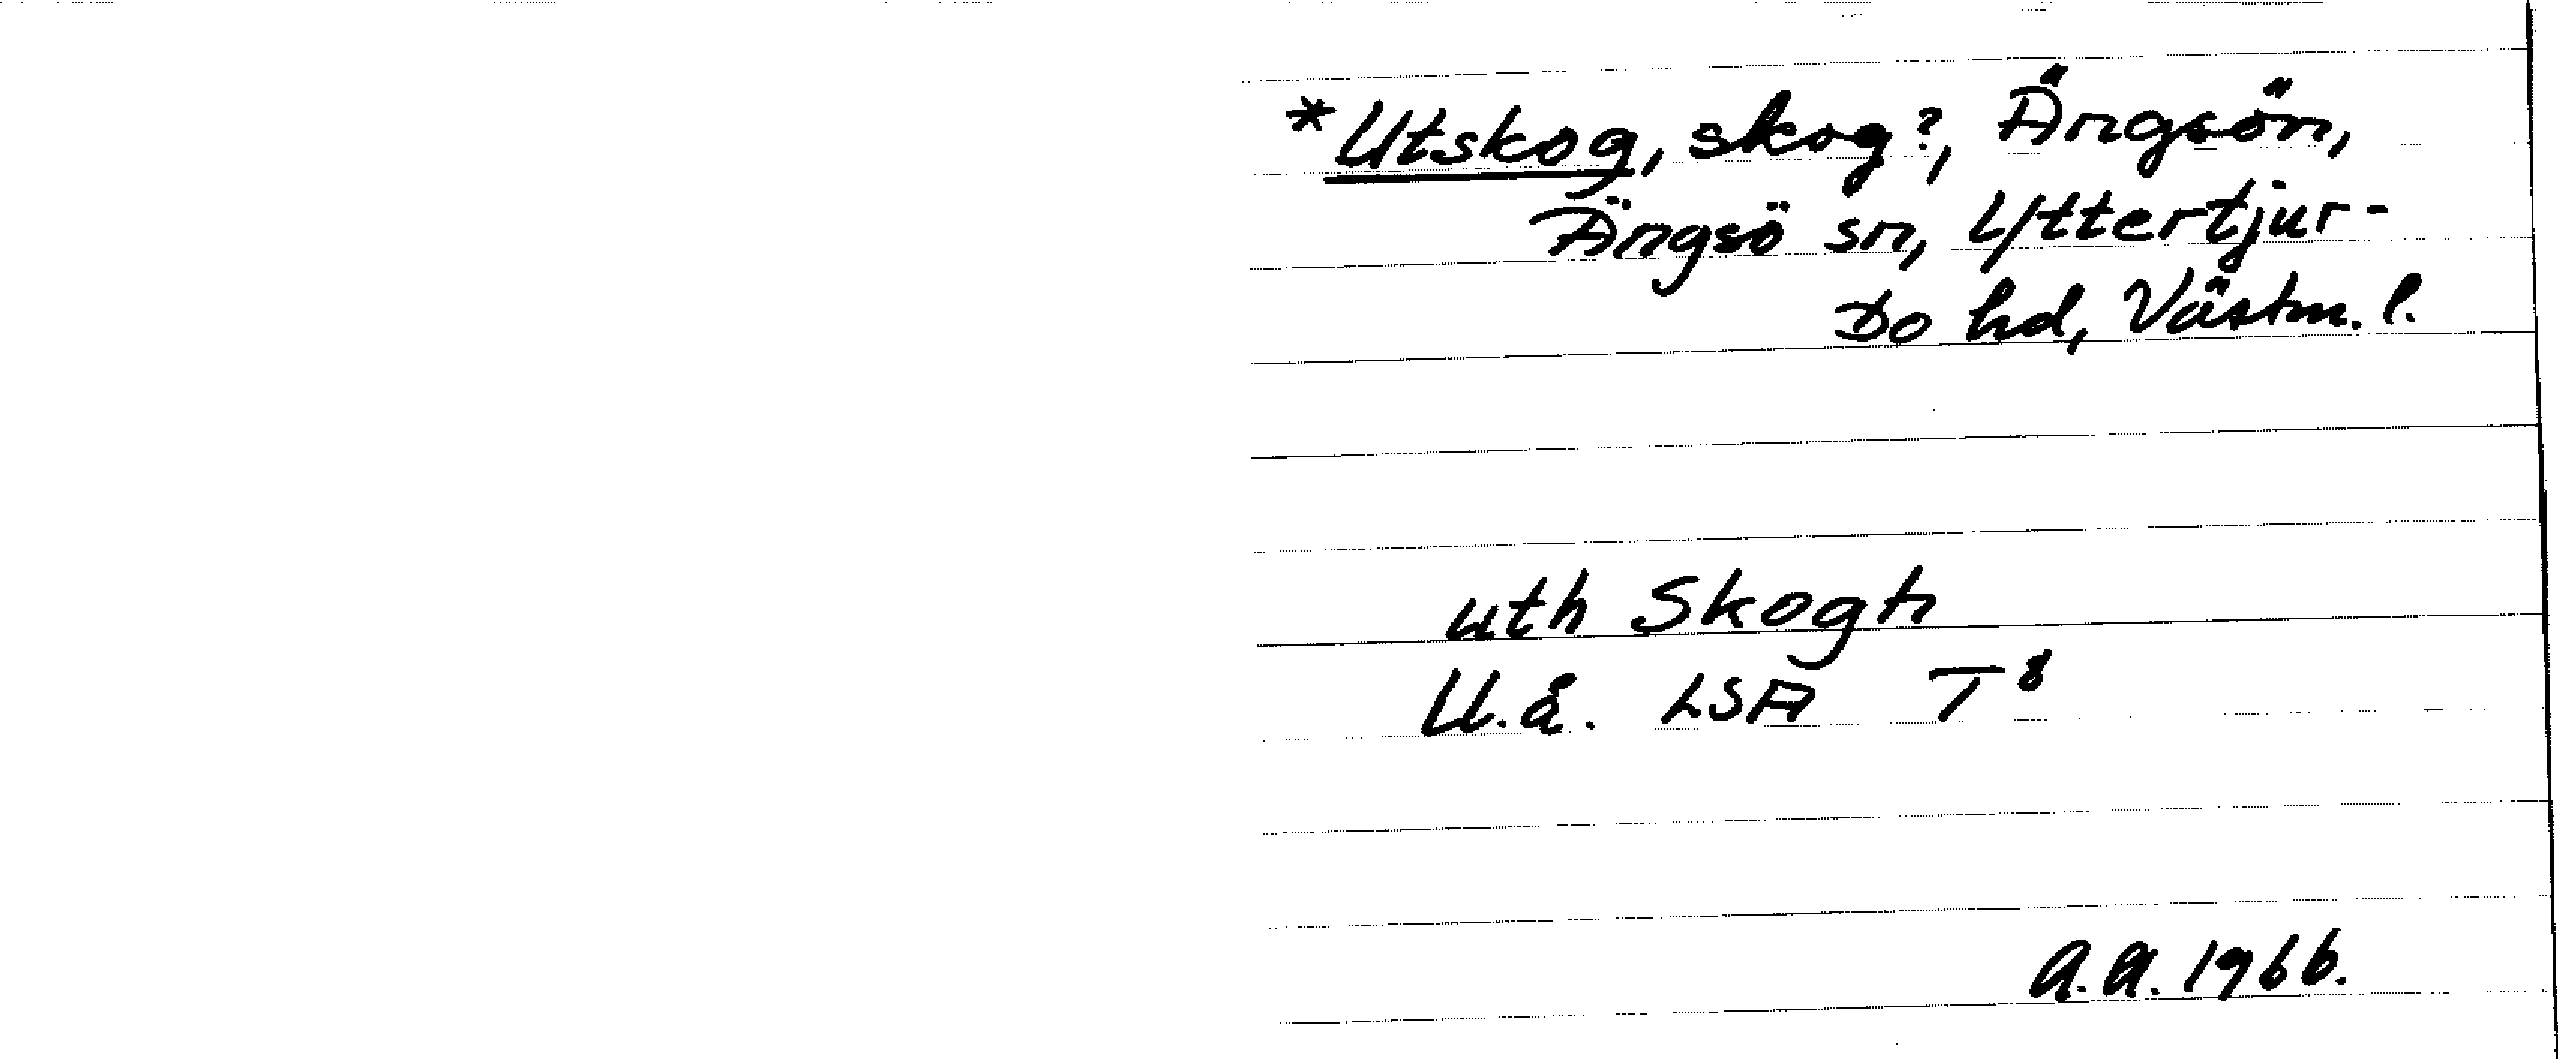 *Utskog, skog?, Ängsön,
Ängsö sn, Yttertjur-
bo hd, Västm. l.
uth Skogh
U.å. LSA T⁸
A.A. 1966.